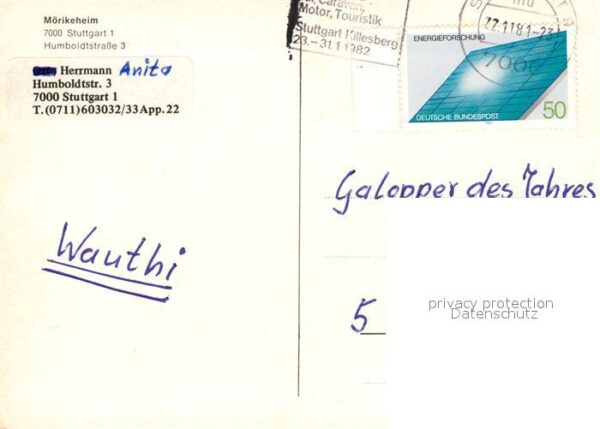 Mörikeheim
7000 Stuttgart 1
Humboldtstraße 3
Herrmann Anita
Humboldtstr. 3
7000 Stuttgart 1
T. (0711) 603032/33 App. 22
Caravan,
Motor, Touristik
Stuttgart Killesberg
23.-31.1.1982
22.11.81-23
7000
ENERGIEFORSCHUNG
50
DEUTSCHE BUNDESPOST
Galopper des Jahres
Wauthi
5
privacy protection
Datenschutz